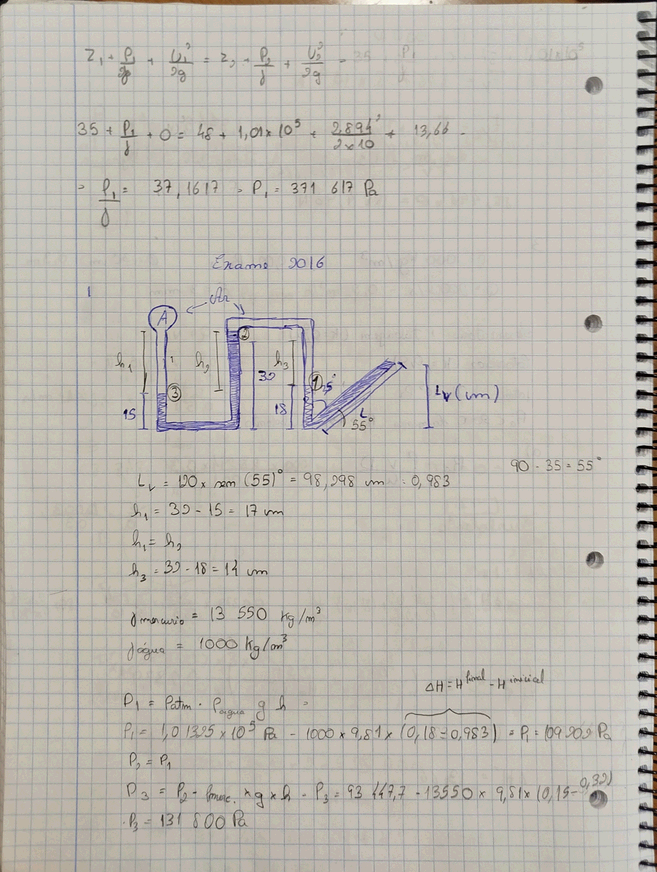 Z₁ + P₁/γ + U₁²/2g = Z₂ + P₂/γ + U₂²/2g
35 + P₁/γ + 0 = 48 + 1,01×10⁵ + 2,894²/2×10 + 13,66
P₁/γ = 37,1617 P₁ = 371 617 Pa
Exame 2016
1
Ar
A
2
h₁
h₂
32
h₃
1
35°
3
15
18
L
55°
Lv (cm)
90 - 35 = 55°
Lv = 120 × sen (55)° = 98,298 cm 0,983
h₁ = 32 - 15 = 17 cm
h₁ = h₂
h₃ = 32 - 18 = 14 cm
γmercurio = 13 550 kg/m³
γágua = 1000 kg/m³
ΔH = H final - H inicial
P₁ = Patm - ρagua g h =
P₁ = 1,01325×10⁵ Pa - 1000 × 9,81 × (0,18 - 0,983) = P₁ = 109202 Pa
P₂ = P₁
P₃ = P₂ - ρmerc. × g × h - P₃ = 93 447,7 - 13550 × 9,81 × (0,15 - 0,32)
P₃ = 131 800 Pa